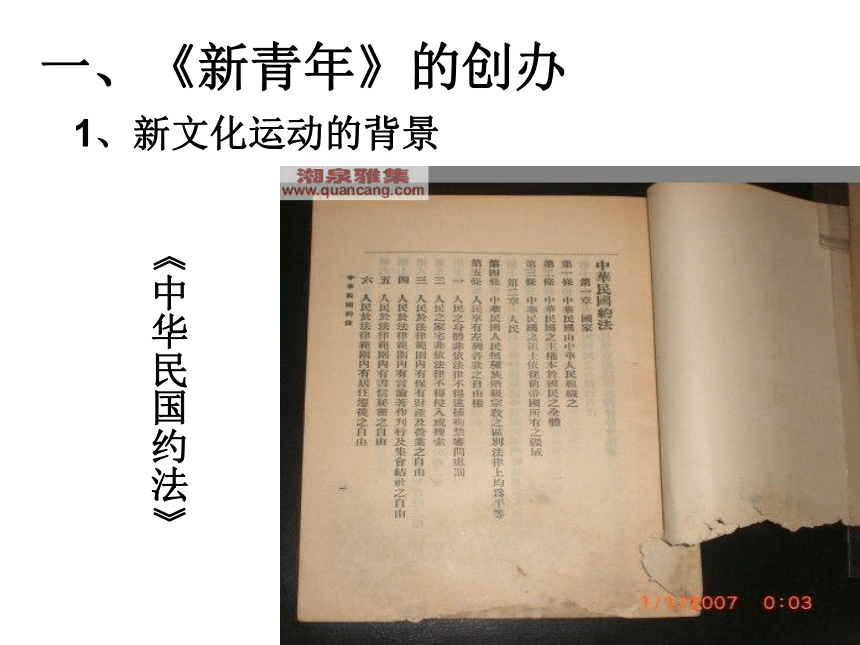 一、《新青年》的创办
1、新文化运动的背景
《中华民国约法》
湘泉雅集
www.quancang.com
中華民國約法
第一章 國家
第一條 中華民國由中華人民組織之
第二條 中華民國之主權本於國民之全體
第三條 中華民國之領土依從前帝國所有之疆域
第二章 人民
第四條 中華民國人民無種族階級宗教之區別法律上均爲平等
第五條 人民享有左列各款之自由權
一 人民之身體非依法律不得逮捕拘禁審問處罰
二 人民之家宅非依法律不得侵入或搜索
三 人民於法律範圍內有保有財產及營業之自由
四 人民於法律範圍內有言論著作刊行及集會結社之自由
五 人民於法律範圍內有書信秘密之自由
六 人民於法律範圍內有居住遷徙之自由
中華民國約法
一
1/1/2007 0:03